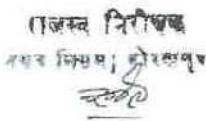 राजस्व निरीक्षक
नगर निगम, गोरखपुर